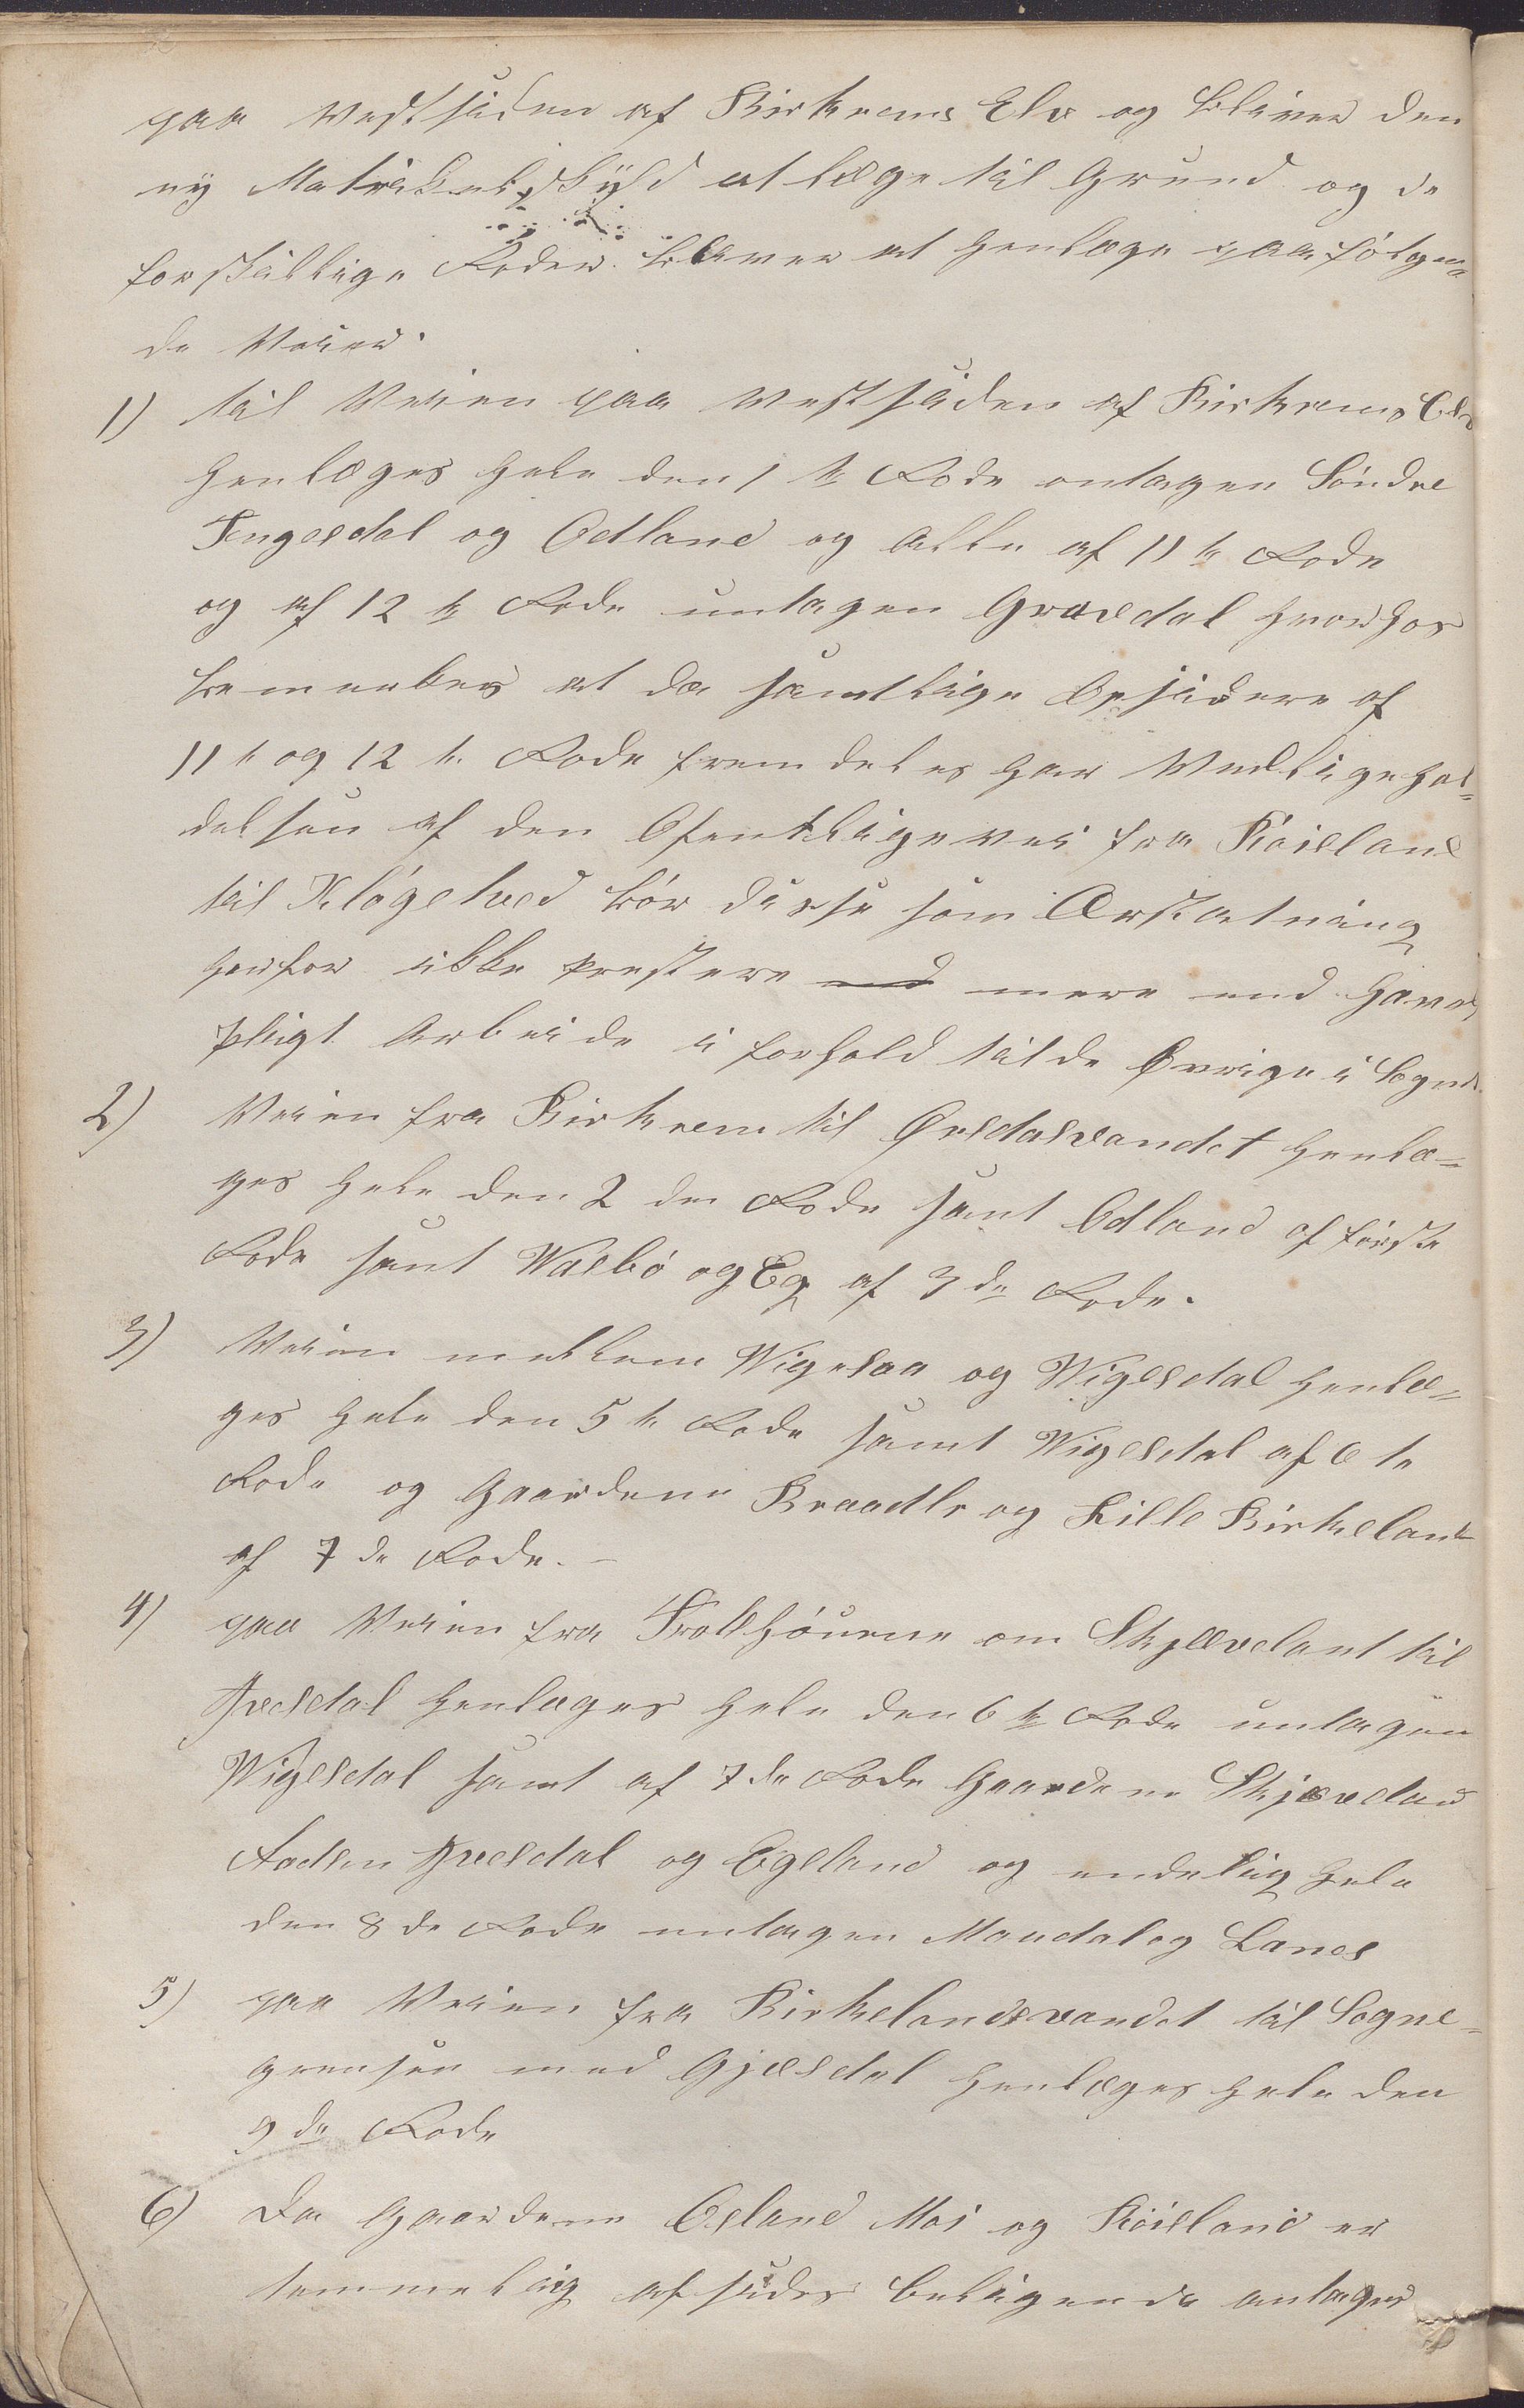 paa Vestsiden af Birkrems Elv og bliver den
ny Matrikelskyld at læge til Grund og de
forskjællige Roder bliver at henlæge paa følgen-
de Veier.
1) til Veien paa Vestsiden af Birkrems Elv
henlæges hele den 1te Rode untagen Söndre
Tengesdal og Odland og Alle af 11te Rode
og af 12te Rode untagen Gravdal hvorhos
bemerkes at da samtlige Opsidere af
11te og 12te Rode fremdeles har Vedligehol-
delsen af den Ofentligevei fra Röisland
til Klögetved bör disse som Erstatning
herfor ikke prestere mere end halv
pligt Arbeide i forhold til de Øvrige i Sognet
2) Veien fra Birkrem til Ørsdalsvandet henlæ-
ges hele den 2den Rode samt Odland af förste
Rode samt Wasbö og Eg af 3de Rode.
3) Veien mellem Vigesaa og Vigesdal henlæ-
ges hele den 5te Rode samt Vigesdal af 6te
Rode og Gaardene Braadli og Lille Birkeland
af 7de Rode. -
4) paa Veien fra Trolhöuene om Skjævelant til
Ivesdal henlæges hele den 6te Rode untagen
Vigesdal samt af 7de Rode Gaardene Skjæveland
Aadsen Ivesdal og Egeland og endelig hele
den 8de Rode untagen Maudal og Lanes
5) paa Veien fra Birkelandsvandet til Sogne-
grensen med Gjæsdal henlæges hele den
9de Rode
6) Da Gaardene Osland Moi og Röisland er
temmelig afsides beligende antages